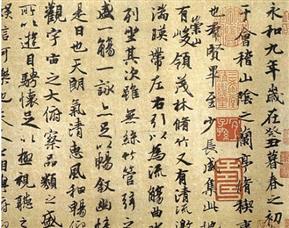 永和九年歲在癸丑暮春之初
于會稽山陰之蘭亭脩稧事
也群賢畢至少長咸集此地
有崇山峻領茂林脩竹又有清流激
湍暎帶左右引以為流觴曲水
列坐其次雖無絲竹管弦之
盛一觴一詠亦足以暢敘幽情
是日也天朗氣清惠風和暢仰
觀宇宙之大俯察品類之盛
所以遊目騁懷足以極視聽之
信可樂也